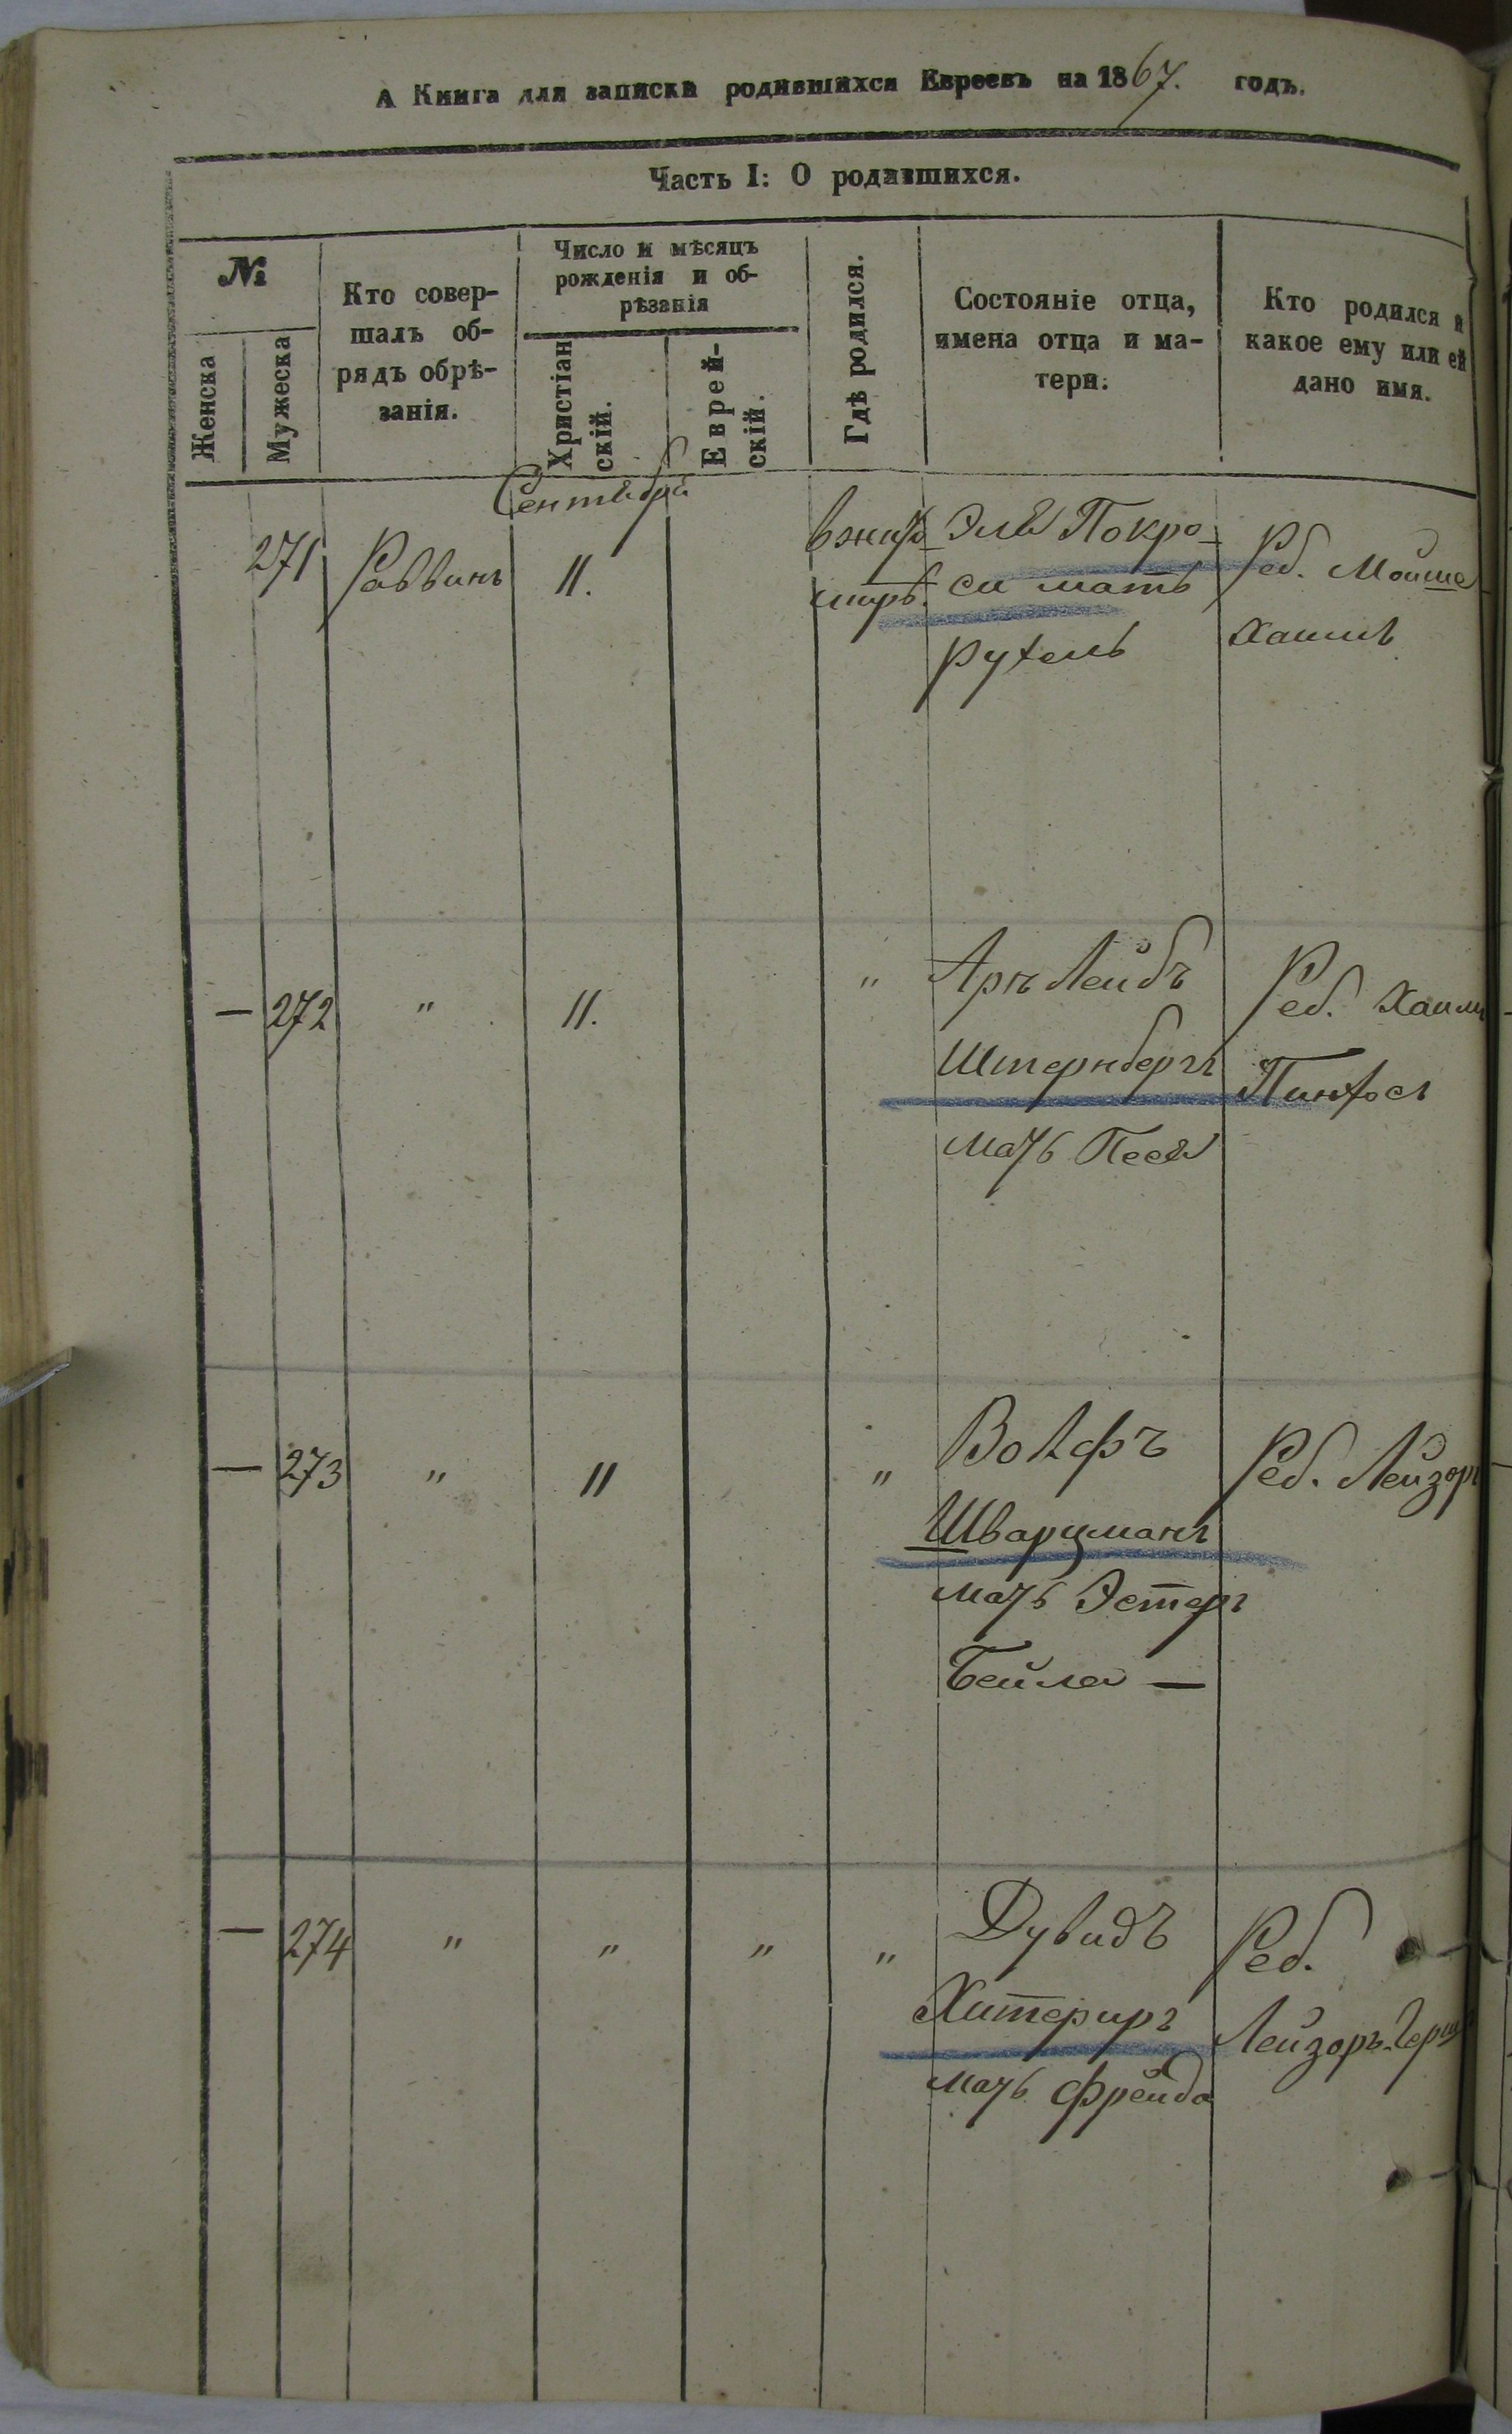 А Книга для записки родившихся Евреевъ на 1867. годъ.
Часть I: О родившихся.
№
Женска
Мужеска
Кто совер-
шалъ об-
рядъ обрѣ-
занія.
Число и мѣсяцъ
рожденія и об-
рѣзанія
Христіан
скій.
Еврей-
скій.
Гдѣ родился.
Состояніе отца,
имена отца и ма-
тери.
Кто родился и
какое ему или ей
дано имя.
Сентября
271 Раввинъ 11.
вжит
Эля Покро-
си мать
Рухель
Реб. Мойше
Хаимъ
— 272 " 11. "
Аръ Лейбъ
Штернбергъ
мать Песя
Реб. Хаимъ
Пинхосъ
— 273 " 11 "
Вольфъ
Шварцманъ
мать Эстеръ
Бейла —
Реб. Лейзоръ
— 274 " " " "
Дувидъ
Хитериръ
мать Фрейда
Реб.
Лейзоръ Герш